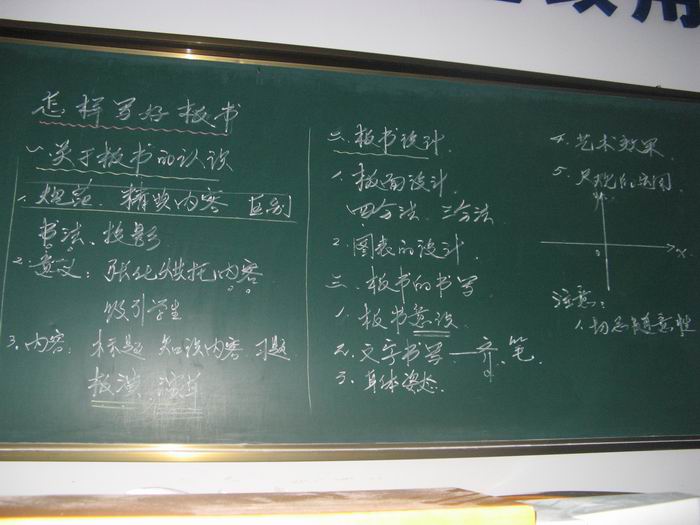 怎样写好板书
一、关于板书的认识
1. 规范、精炼内容 区别
书法、投影
2. 意义：强化烘托内容
吸引学生
3. 内容：标题 知识内容 习题
板演 演草
二、板书设计
1. 板面设计
四分法、三分法
2. 图表的设计
三、板书的书写
1. 板书意识
2. 文字书写 — 齐、笔
3. 身体姿态
4. 艺术效果
5. 尺规的使用
x
0
注意：
1. 切忌随意性